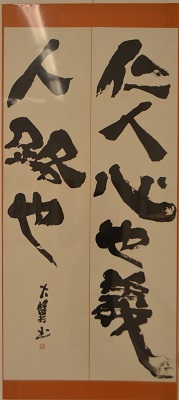 仁人心也義
人路也